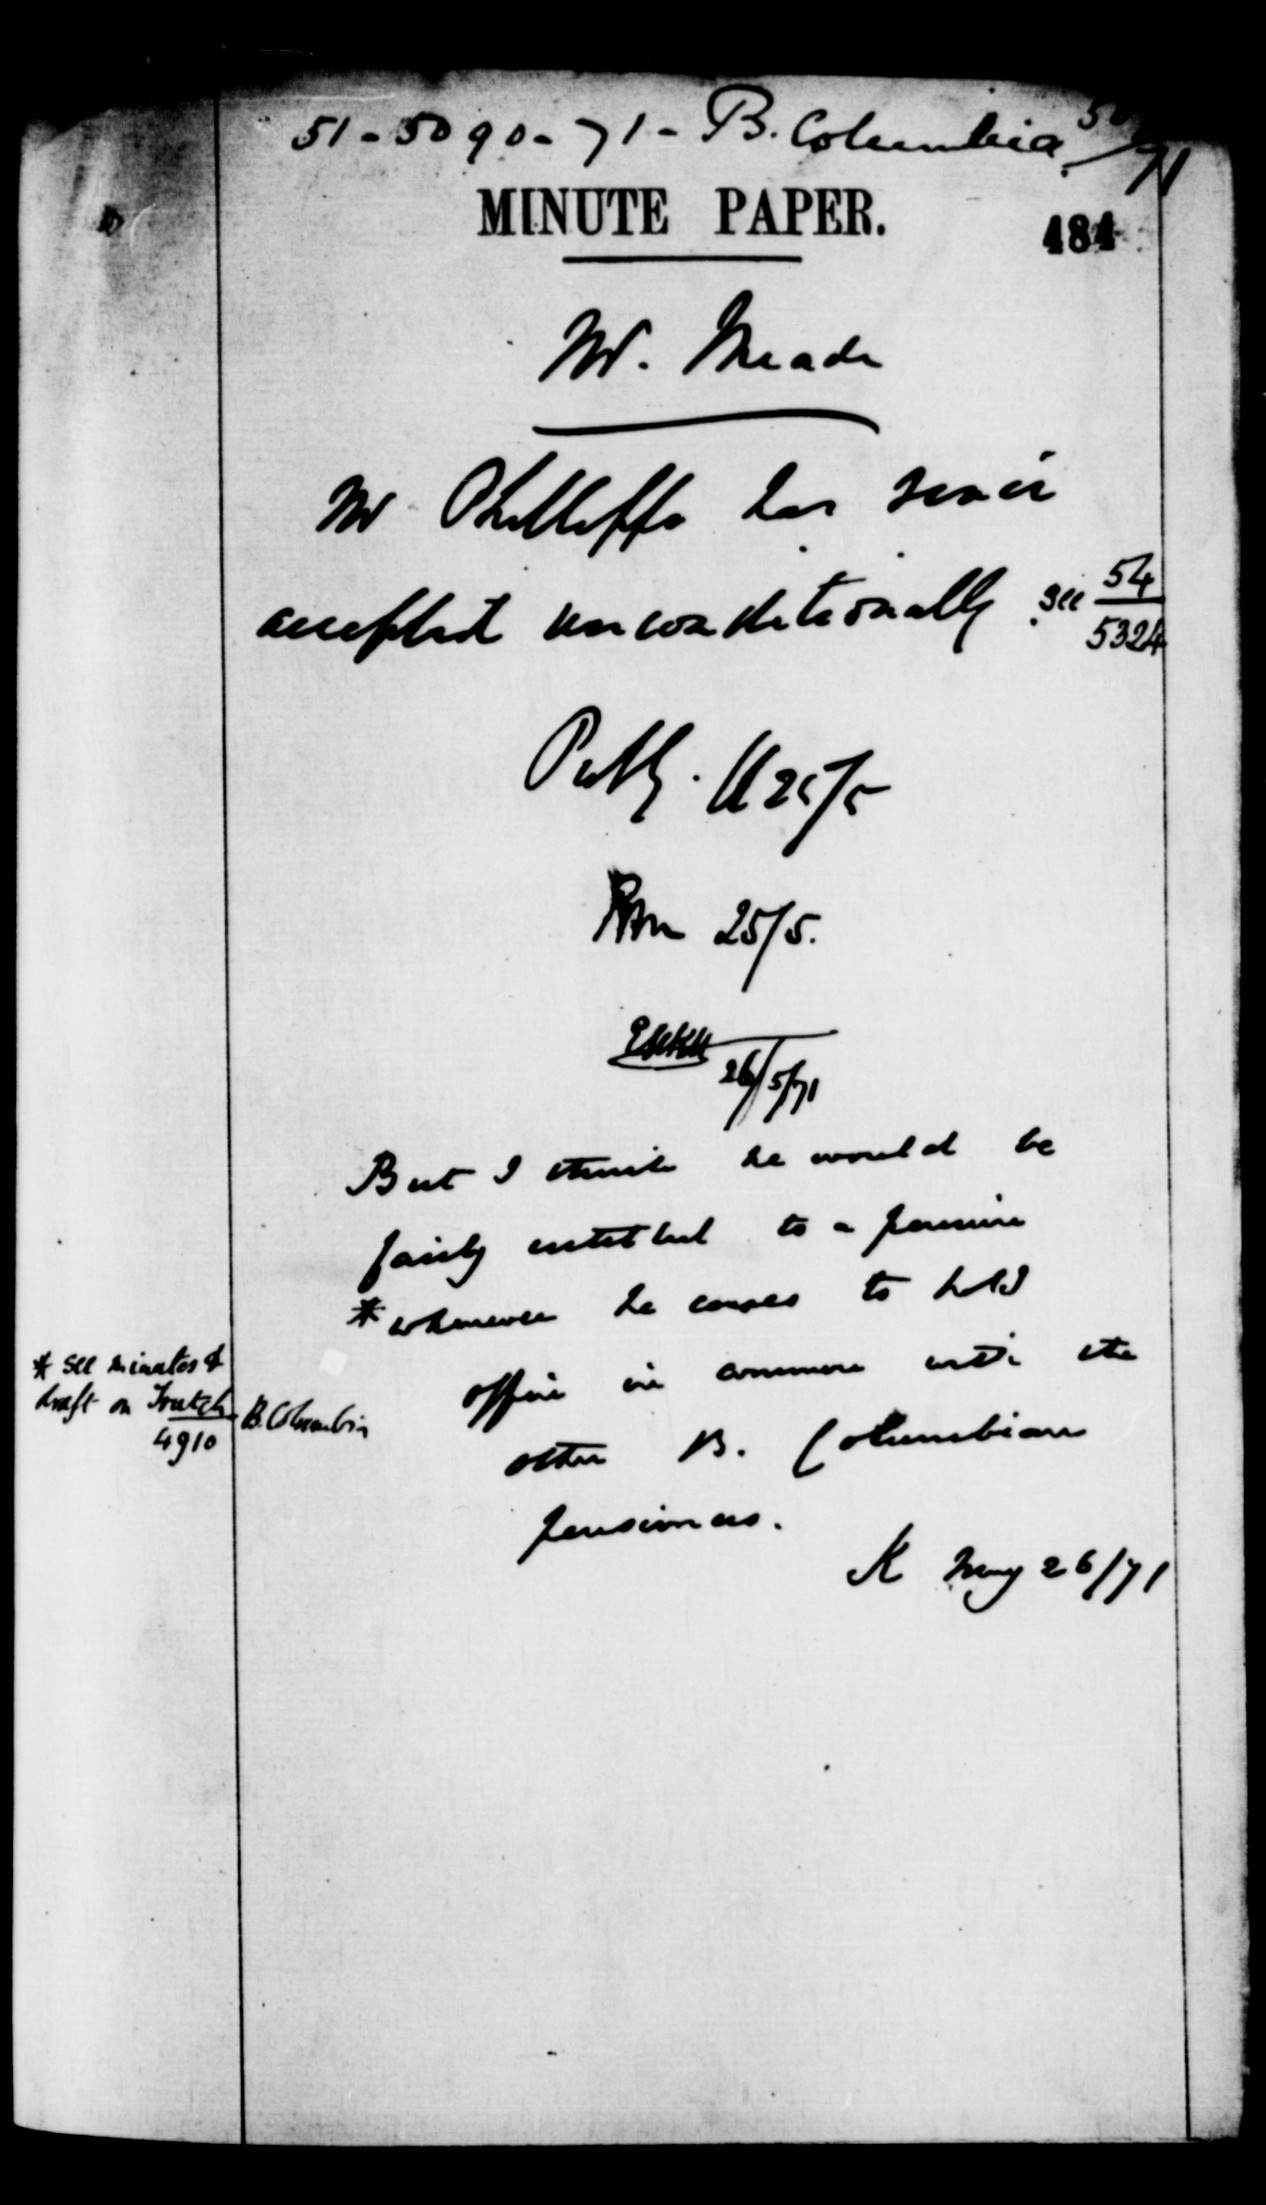 51-5090-71- B. Columbia
MINUTE PAPER.
484
Mr. Meade
Mr Philleppo has since
accepted unconditionally see 54
5324
Put by. 25/5
RM 25/5.
26/5/71
But I think he would be
fairly entitled to a pension
*whenever he ceases to hold
office in common with the
other B. Columbian
pensioners.
K May 26/71
* see minutes &
draft on Trutch
4910
B. Columbia